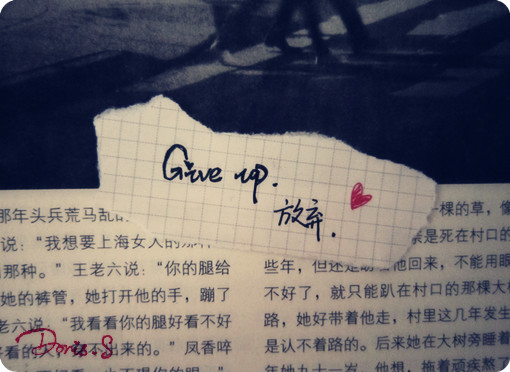 Give up.
放弃.
那年头兵荒马乱
说：“我想要上海女人的那种
那种。”王老六说：“你的腿给
她的裤管，她打开他的手，蹦了
老六说：“我看看你的腿好看不好
不出来的。”凤香啐
Doris.S
一棵的草，像
是死在村口的
些年，但还是 他回来，不能用眼
不好了，就只能趴在村口的那棵大
路，她好带着他走，村里这几年发生
是认不着路的。后来她在大树旁睡着
年她九十一岁，他想，拖着顽疾熬